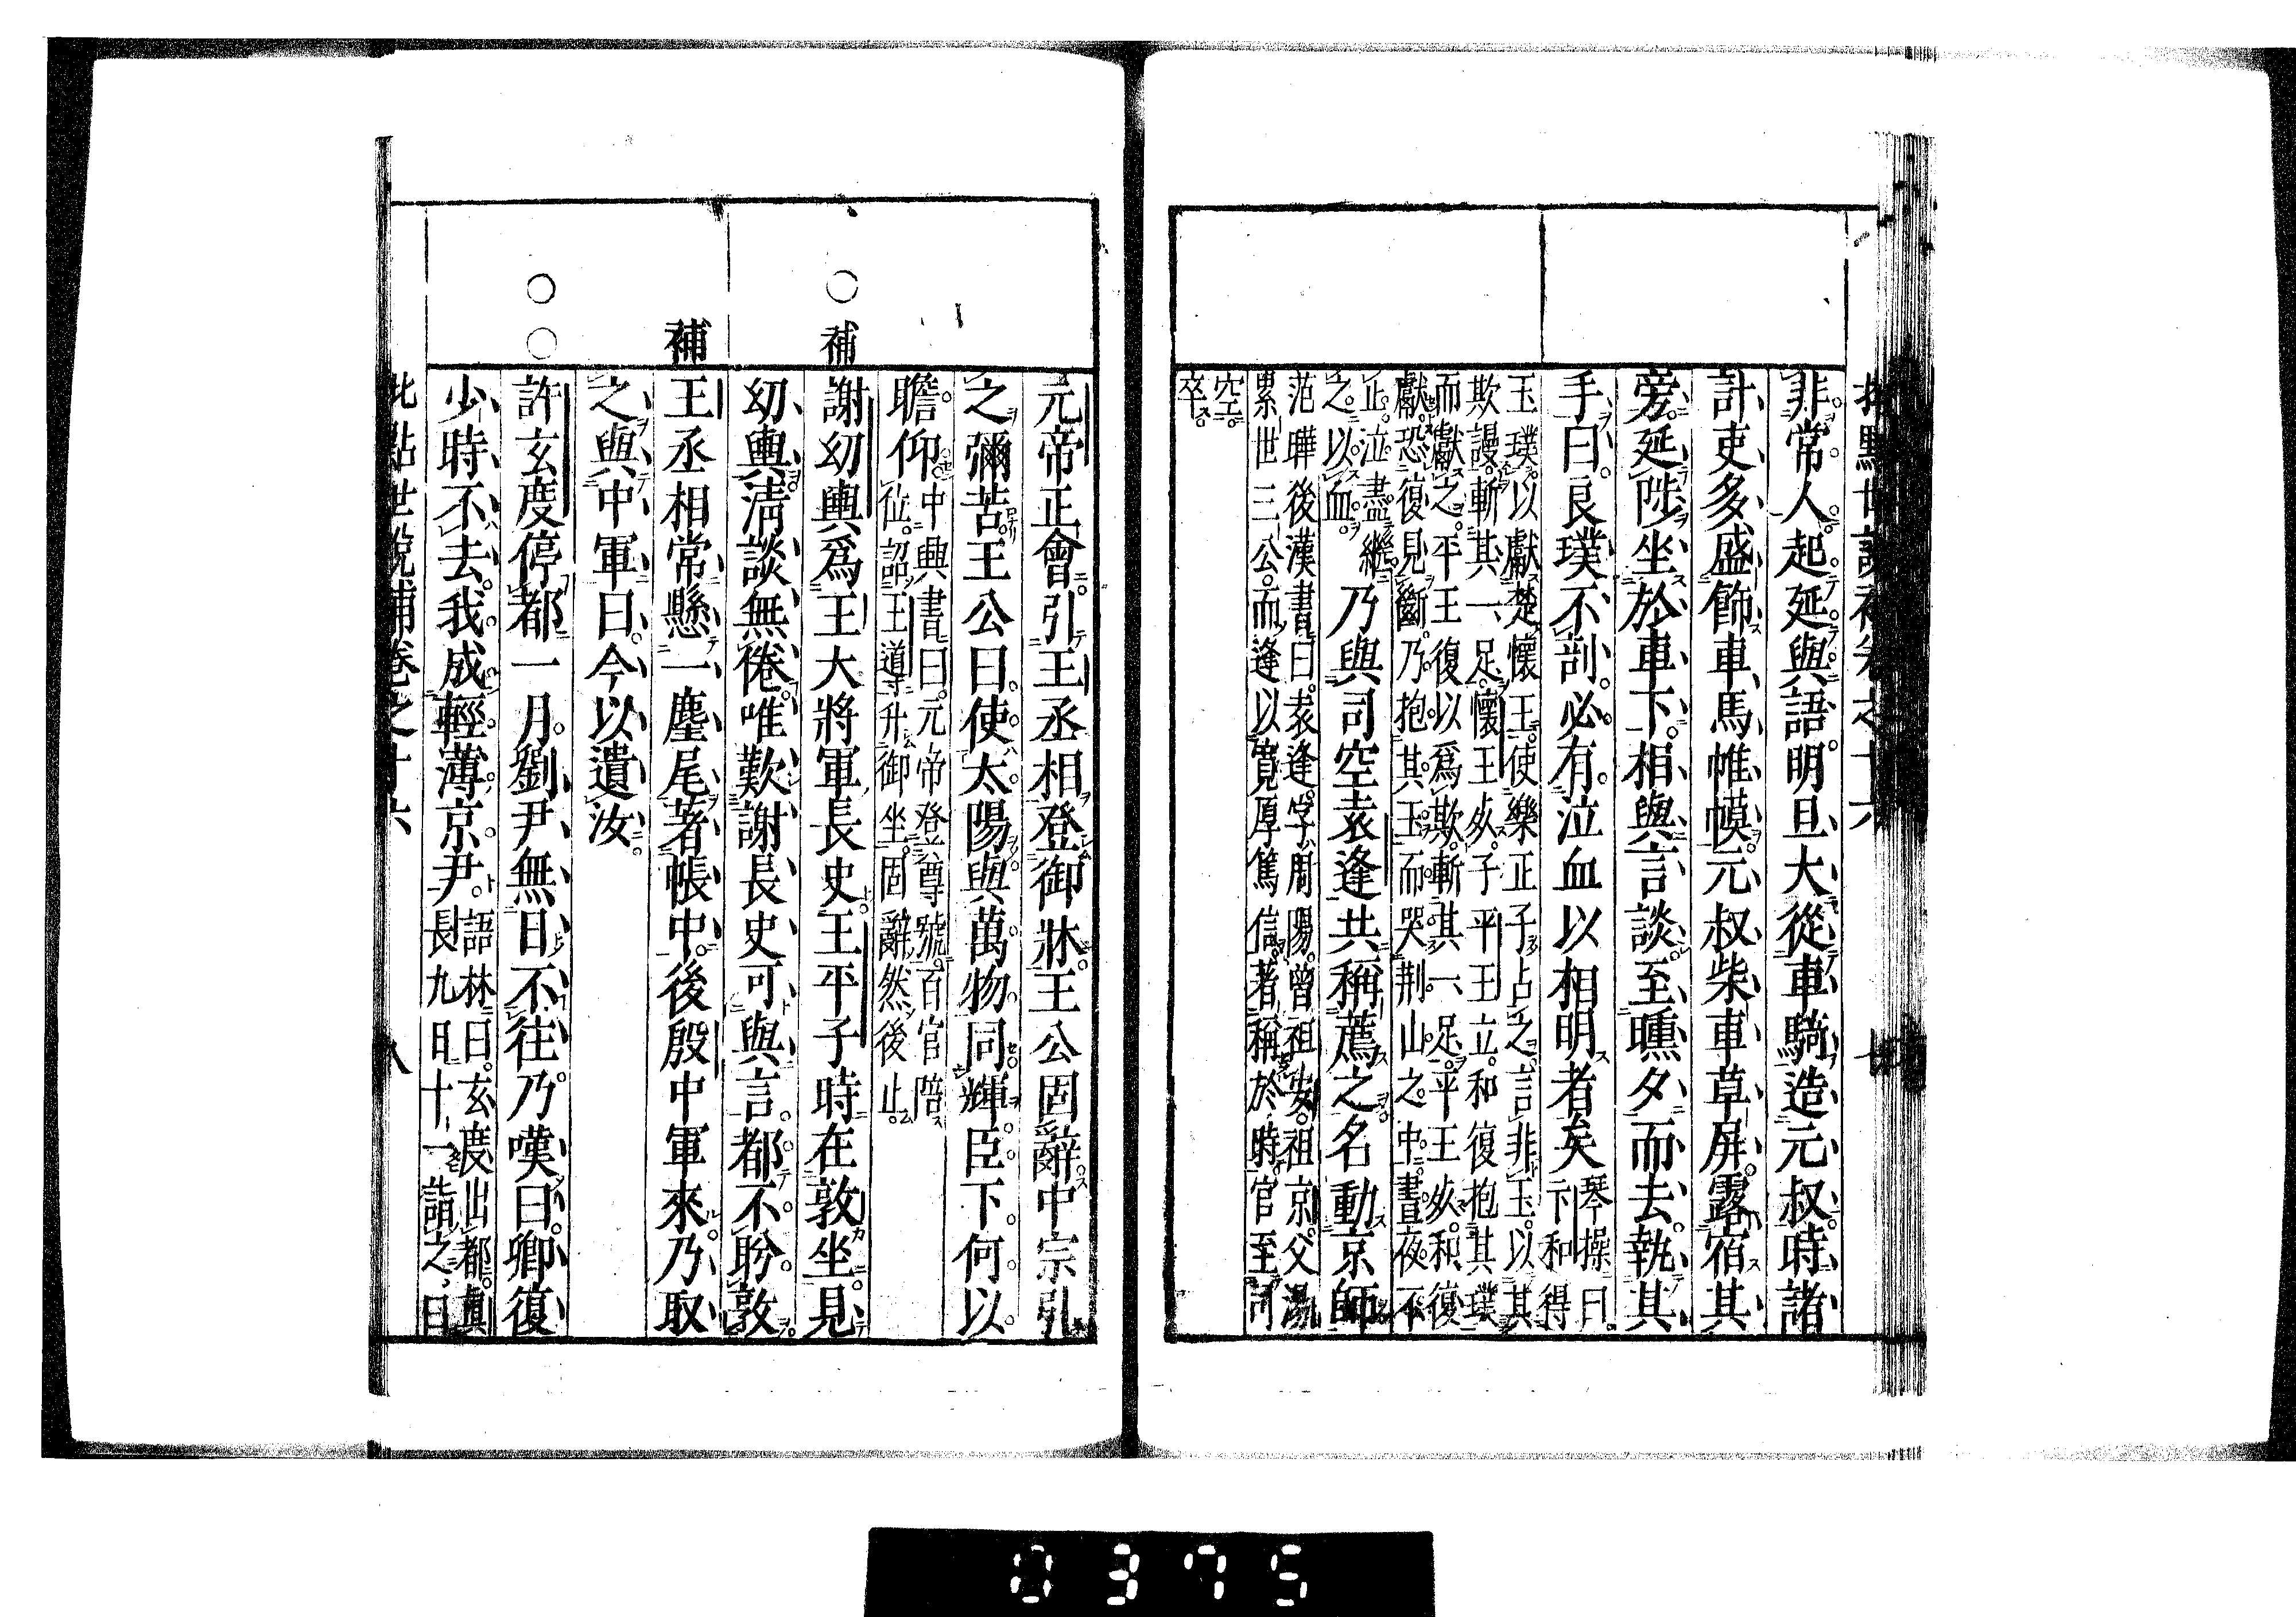 批點世說補卷之十六
非常人起延與語明旦大從車騎造元叔時諸
計吏多盛飾車馬帷幙元叔柴車草屏露宿其
旁延陟坐於車下相與言談至曛夕而去執其
手曰良璞不剖必有泣血以相明者矣
琴操曰
卞和得
玉璞以獻楚懷王使樂正子占之言非玉以其
欺謾斬其一足懷王死子平王立和復抱其璞
而獻之平王復以為欺斬其一足平王死和復
獻恐復見斷乃抱其玉而哭荆山之中晝夜不
止泣盡繼
之以血
乃與司空袁逢共稱薦之名動京師
范曄後漢書曰袁逢字周陽曾祖安祖京父湯
累世三公而逢以寬厚篤信著稱於時官至司
空
卒
元帝正會引王丞相登御牀王公固辭中宗引
之彌苦王公曰使太陽與萬物同輝臣下何以
瞻仰
中興書曰元帝登尊號百官陪
位詔王導升御坐固辭然後止
補
謝幼輿爲王大將軍長史王平子時在敦坐見
幼輿清談無倦唯歎謝長史可與言都不眄敦
補
王丞相常懸一麈尾著帳中後殷中軍來乃取
之與中軍曰今以遺汝
許玄度停都一月劉尹無日不往乃嘆曰卿復
少時不去我成輕薄京尹
語林曰玄度出都真
長九日十一詣之曰
批點世說補卷之十六
八
0375